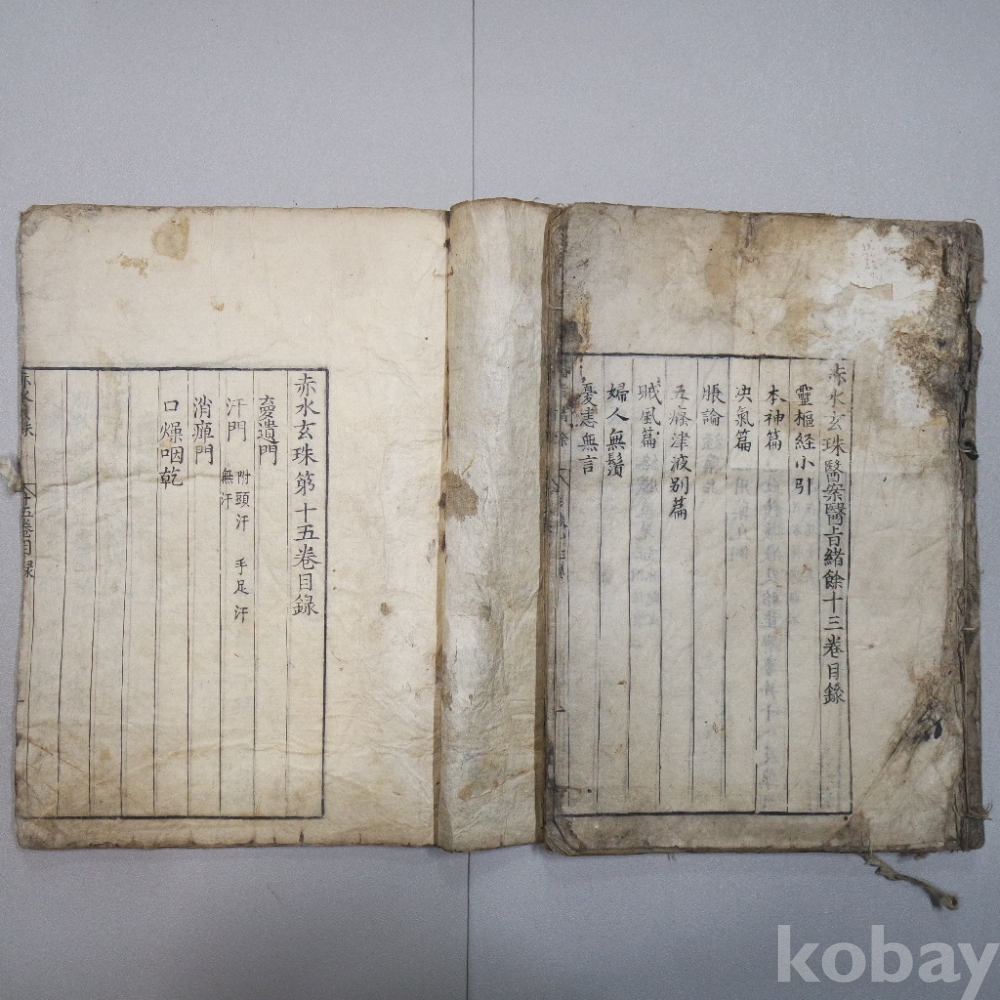 赤水玄珠醫案醫旨緒餘十三卷目錄
靈樞經小引
本神篇
決氣篇
脹論
五癃津液別篇
賊風篇
婦人無鬚
憂恚無言
赤水玄珠第十五卷目錄
夢遺門
汗門 附頭汗 手足汗 無汗
消癉門
口燥咽乾
十五卷目錄
kobay